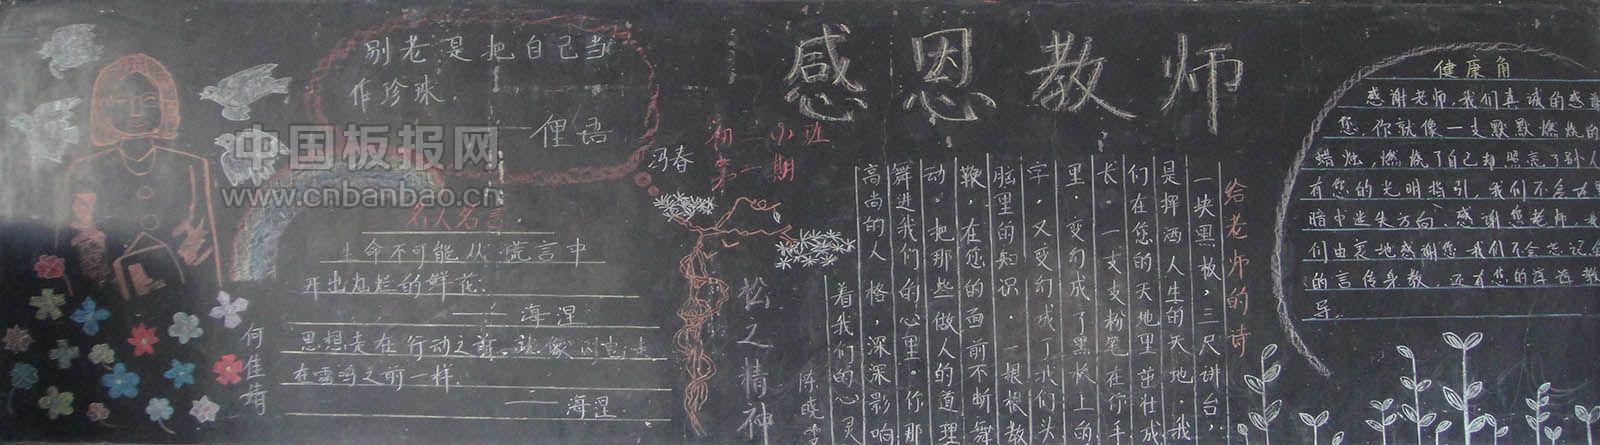 感恩教师
别老是把自己当
作珍珠.
——俚语
中国板报网
www.cnbanbao.cn
名人名言
生命不可能从谎言中
开出灿烂的鲜花.
——海涅
思想走在行动之前,就象闪电走
在雷鸣之前一样.
——海涅.
何佳婧
冯春
班
期
松之精神
给老师的诗
一块黑板,三尺讲台,
是挥洒人生的天地.我
们在您的天地里茁壮成
长。一支支粉笔在你手
里,变幻成了黑板上的
字,又变幻成了我们头
脑里的知识.一根根教
鞭,在您的面前不断舞
动。把那些做人的道理
舞进我们的心里。你那
高尚的人格,深深影响
着我们的心灵
陈晓
健康角
感谢老师,我们真诚的感谢
您,你就像一支默默燃烧的
蜡烛,燃烧了自己却照亮了别人
有您的光明指引,我们不会在黑
暗中迷失方向.感谢您老师,我
们由衷地感谢您.我们不会忘记您
的言传身教,还有您的谆谆教
导.